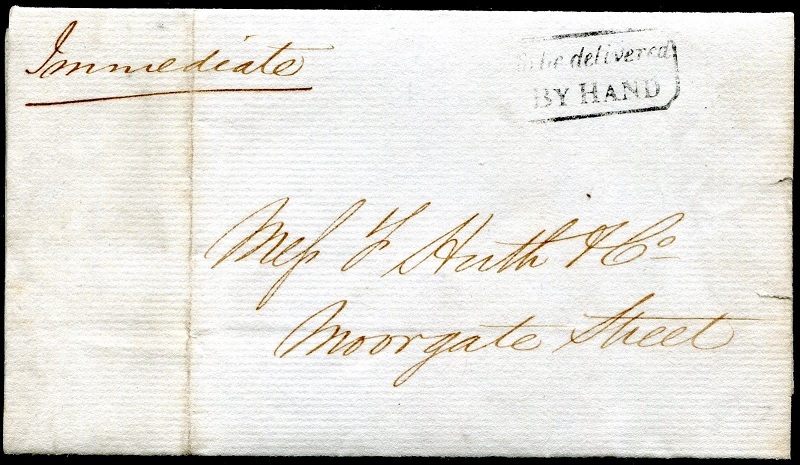 Immediate
To be delivered
BY HAND
Messrs F Huth & Co
Moorgate Street